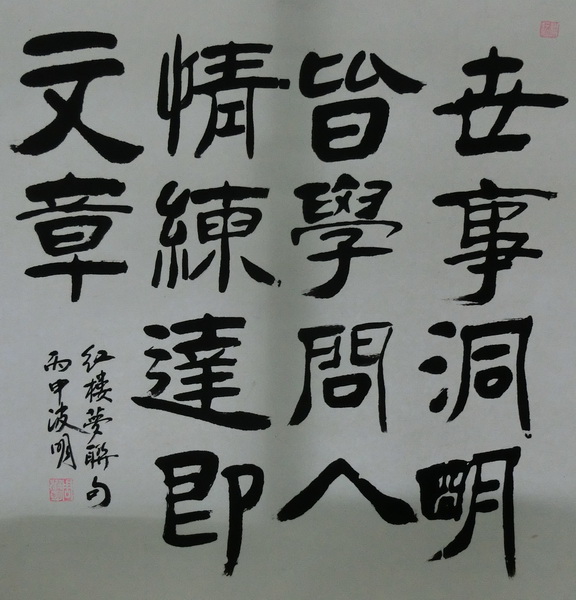 世事洞明
皆學問人
情練達即
文章
红楼夢聯句
丙申波明